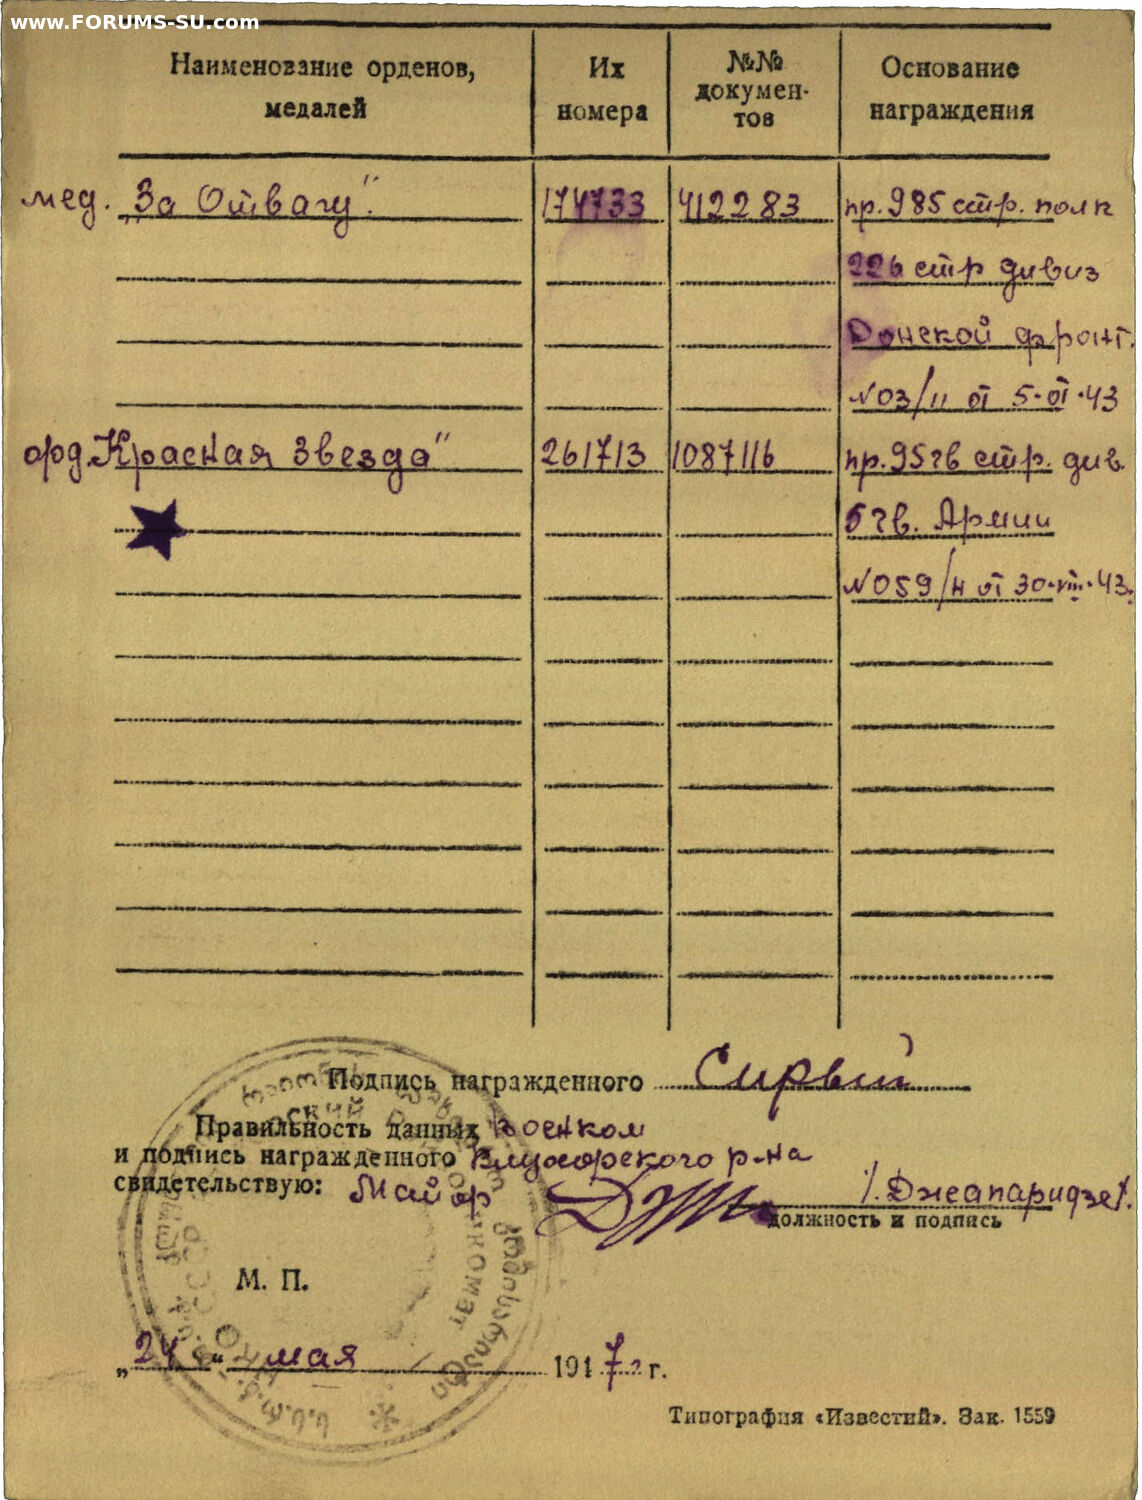 www.FORUMS-SU.com
Наименование орденов, медалей | Их номера | №№ докумен-тов | Основание награждения
мед. „За Отвагу“. | 174733 | 412283 | пр. 985 стр. полк
226 стр дивиз
Донской фронт.
№03/н от 5-01-43
орд. „Красная Звезда“ | 261713 | 1087116 | пр. 95 гв стр. див.
5 гв. Армии
№059/н от 30-VIII-43.
Подпись награжденного Сирый
Правильность данных Военком
и подпись награжденного Клухорского р-на
свидетельствую: Майор /Джапаридзе/.
должность и подпись
М. П.
„24“ мая 1947 г.
Типография «Известий». Зак. 1559